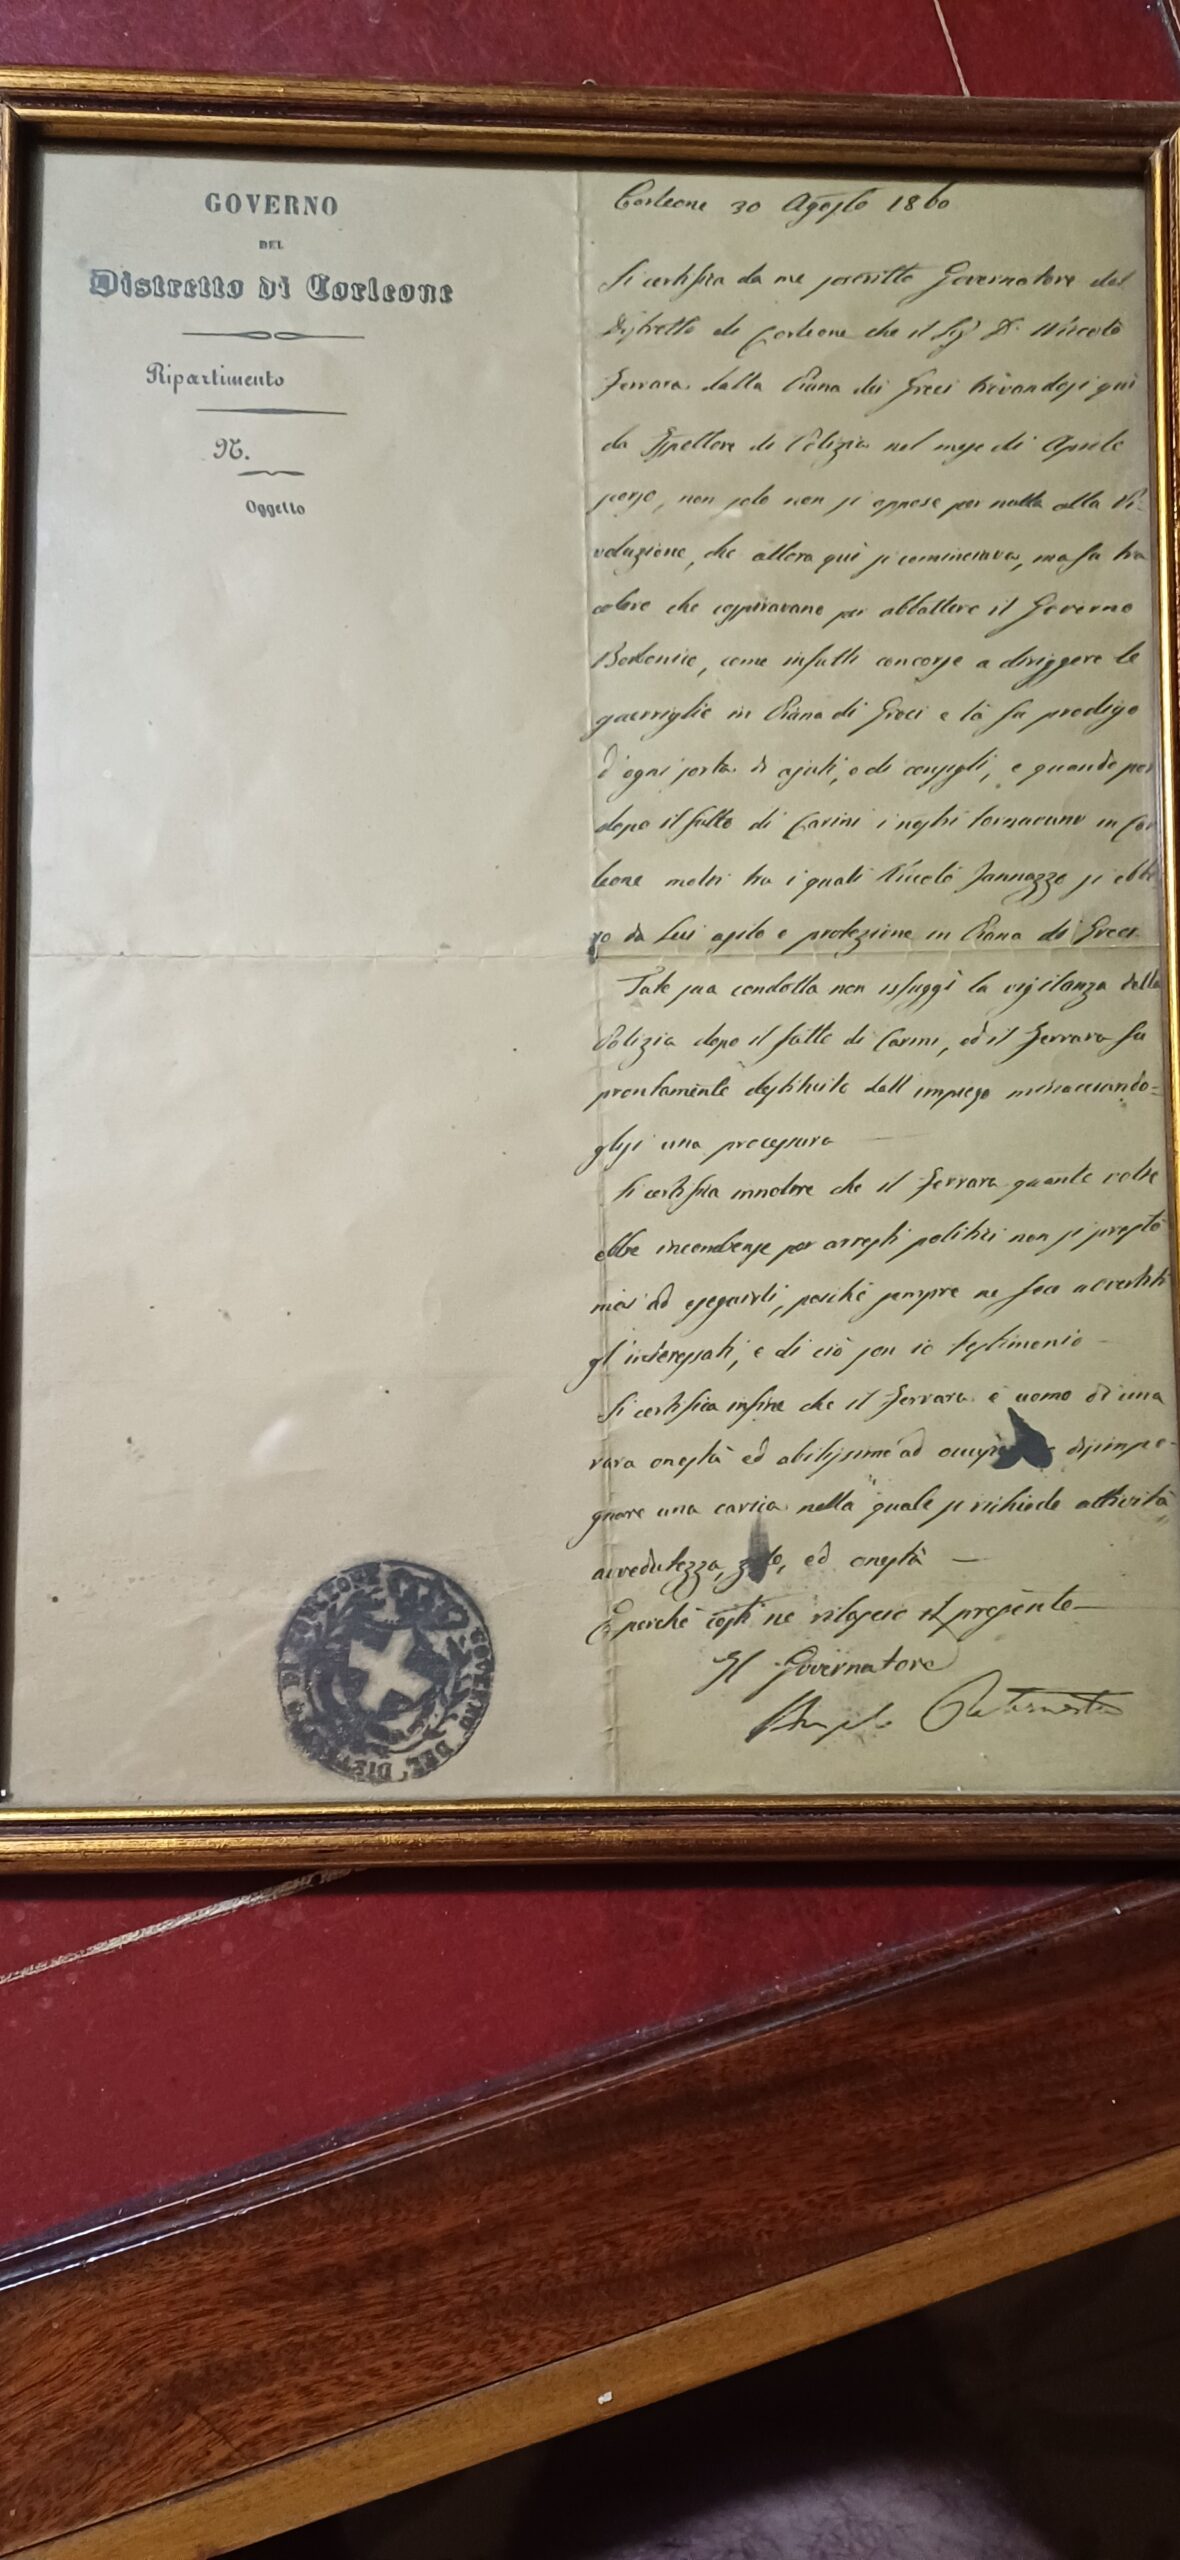 GOVERNO
DEL
Distretto di Corleone
Ripartimento
N.
Oggetto
Corleone 30 Agosto 1860
Si certifica da me soscritto Governatore del
Distretto di Corleone che il Sig.r D. Niccolò
Ferrara dalla Piana dei Greci trovandosi qui
da Ispettore di Polizia nel mese di Aprile
scorso, non solo non si oppose per nulla alla Ri-
voluzione, che allora quì si cominciava, ma fu tra
coloro che cospiravano per abbattere il Governo
Borbonico, come infatti concorse a diriggere le
guerriglie in Piana di Greci e là fu prodigo
d'ogni sorta di ajuti, e di consigli, e quando poi
dopo il fatto di Carini i nostri tornavano in Cor
leone molti tra i quali Niccolò Jannazzo si ebbe
ro da Lui asilo e protezione in Piana di Greci.
Tale sua condotta non isfuggì la vigilanza della
Polizia dopo il fatto di Carini, ed il Ferrara fu
prontamente destituito dall'impiego minacciando=
glisi una processura
Si certifica innoltre che il Ferrara quante volte
ebbe incombenze per arresti politici non si prestò
mai ad eseguirli, poichè sempre ne fece avvertiti
gl'interessati, e di ciò son io testimonio
Si certifica infine che il Ferrara è uomo di una
rara onestà ed abilissimo ad disimpe-
gnare una carica nella quale si richiede attività
avvedutezza, zelo, ed onestà
E perchè costi ne rilascio il presente
Il Governatore
Angelo Paternostro
GOVERNO DEL DISTRETTO DI CORLEONE